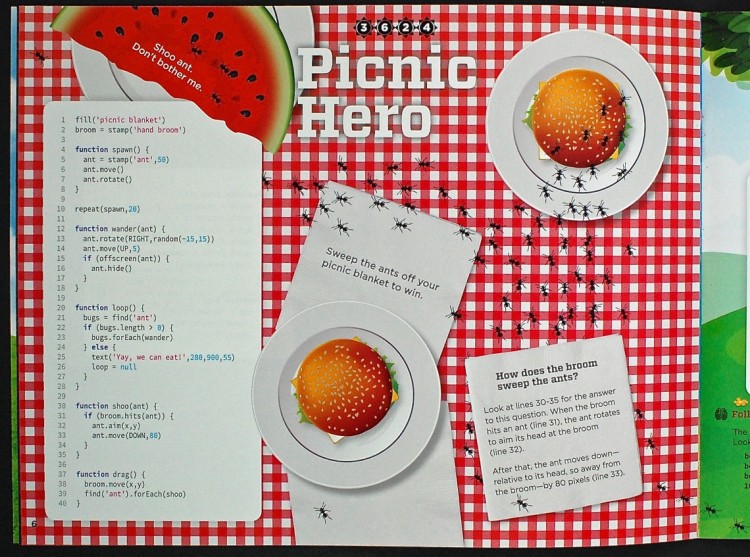 Shoo ant.
Don't bother me.
3 6 2 4
Picnic
Hero
1 fill('picnic blanket')
2 broom = stamp('hand broom')
3
4 function spawn() {
5 ant = stamp('ant',50)
6 ant.move()
7 ant.rotate()
8 }
9
10 repeat(spawn,20)
11
12 function wander(ant) {
13 ant.rotate(RIGHT,random(-15,15))
14 ant.move(UP,5)
15 if (offscreen(ant)) {
16 ant.hide()
17 }
18 }
19
20 function loop() {
21 bugs = find('ant')
22 if (bugs.length > 0) {
23 bugs.forEach(wander)
24 } else {
25 text('Yay, we can eat!',280,900,55)
26 loop = null
27 }
28 }
29
30 function shoo(ant) {
31 if (broom.hits(ant)) {
32 ant.aim(x,y)
33 ant.move(DOWN,80)
34 }
35 }
36
37 function drag() {
38 broom.move(x,y)
39 find('ant').forEach(shoo)
40 }
Sweep the ants off your
picnic blanket to win.
How does the broom
sweep the ants?
Look at lines 30-35 for the answer
to this question. When the broom
hits an ant (line 31), the ant rotates
to aim its head at the broom
(line 32).
After that, the ant moves down—
relative to its head, so away from
the broom—by 80 pixels (line 33).
6